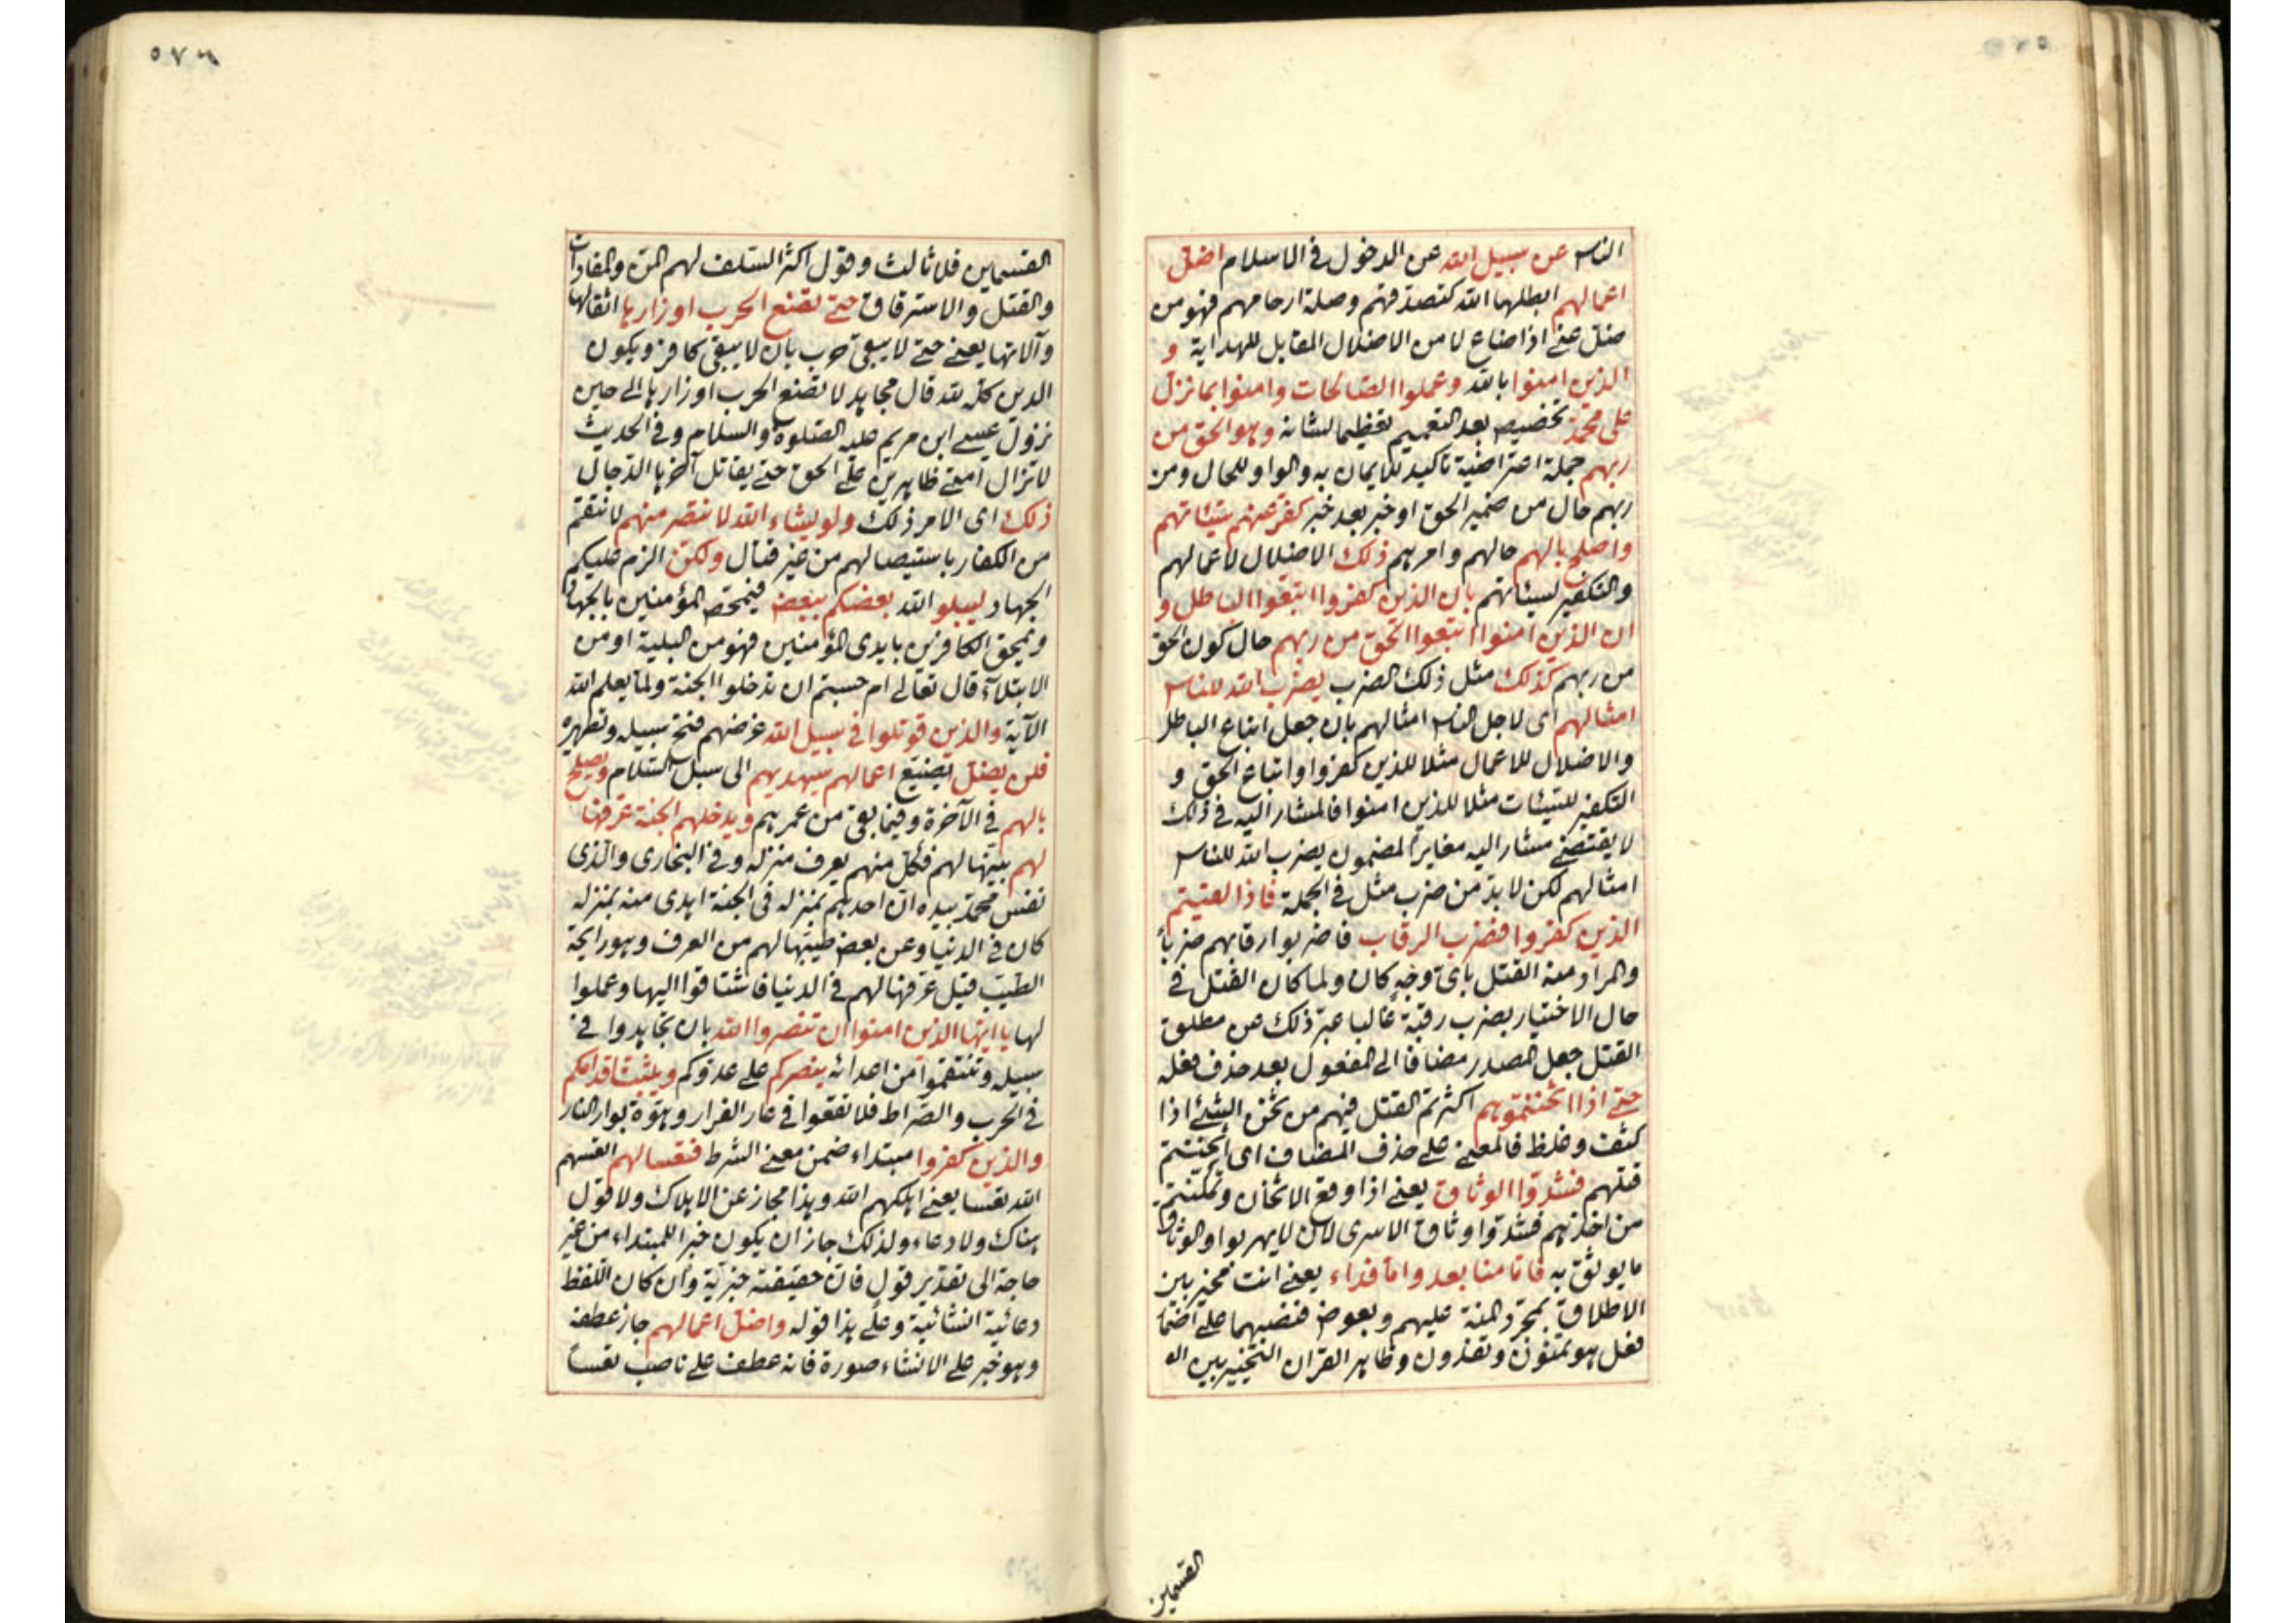 الناس عن سبيل الله عن الدخول في الاسلام اضل
اعمالهم ابطلها الله كتصدقهم وصلة ارحامهم فهو من
ضل عني اذا ضاع لا من الاضلال المقابل للهداية و
الذين امنوا بالله وعملوا الصالحات وامنوا بما نزل
على محمد تخصيص بعد التعميم تعظيما لشانه وهو الحق من
ربهم جملة اعتراضية تاكيد للايمان به والواو للحال ومن
ربهم حال من ضمير الحق او خبر بعد خبر كفر عنهم سيئاتهم
واصلح بالهم حالهم وامرهم ذلك الاضلال لاعمالهم
والتكفير لسيئاتهم بان الذين كفروا اتبعوا الباطل و
ان الذين امنوا اتبعوا الحق من ربهم حال كون الحق
من ربهم كذلك مثل ذلك الضرب يضرب الله للناس
امثالهم اى لاجل الناس امثالهم بان جعل اتباع الباطل
والاضلال للاعمال مثلا للذين كفروا واتباع الحق و
التكفير للسيئات مثلا للذين امنوا فالمشار اليه في ذلك
لا يقتضي مشار اليه مغايرا لمضمون يضرب الله للناس
امثالهم لكن لا بد من ضرب مثل في الجملة فاذا لقيتم
الذين كفروا فضرب الرقاب فاضربوا رقابهم ضربا
والمراد منه القتل باى وجه كان ولما كان القتل في
حال الاختيار بضرب رقبة غالبا عبر ذلك عن مطلق
القتل جعل المصدر مضافا الى المفعول بعد حذف فعله
حتى اذا اثخنتموهم اكثرتم القتل فيهم من ثخن الشئ اذا
كثف وغلظ فالمعنى على حذف المضاف اى اثخنتم
قتلهم فشدوا الوثاق يعني اذا وقع الاثخان وتمكنتم
من اخذهم فشدوا وثاق الاسرى لان لا يهربوا والوثاق
ما يوثق به فاما منا بعد واما فداء يعني انت مخير بين
الاطلاق بمجرد المنة عليهم وبعوض فنصبهما على اضمار
فعل هو تمنون وتفدون وظاهر القران التخيير بين الـ
القسمين
٥٧٦
القسمين فلا ثالث وقول اكثر السلف لهم المن والمفادات
والقتل والاسترقاق حتى تضع الحرب اوزارها اثقالها
وآلاتها يعني حتى لا يبقى حرب بان لا يبقى كافر ويكون
الدين كله لله قال مجاهد لا تضع الحرب اوزارها الى حين
نزول عيسى ابن مريم عليه الصلوة والسلام وفي الحديث
لا تزال امتي ظاهرين على الحق حتى يقاتل آخرها الدجال
ذلك اى الامر ذلك ولو يشاء الله لانتصر منهم لانتقم
من الكفار باستيصالهم من غير قتال ولكن الزم عليكم
الجهاد ليبلو الله بعضكم ببعض فيمحص المؤمنين بالجهاد
ويمحق الكافرين بايدى المؤمنين فهو من البلية او من
الابتلاء قال تعالى ام حسبتم ان تدخلوا الجنة ولما يعلم الله
الآية والذين قوتلوا في سبيل الله غرضهم فتح سبيله وتطهيره
فلن يضل يضيع اعمالهم سيهديهم الى سبل السلام ويصلح
بالهم في الآخرة وفيما بقى من عمرهم ويدخلهم الجنة عرفها
لهم بينها لهم فكل منهم يعرف منزله وفي البخارى والذى
نفس محمد بيده ان احدهم بمنزله في الجنة اهدى منه بمنزله
كان في الدنيا وعن بعض طيبها لهم من العرف وهو رايحة
الطيب قيل عرفها لهم في الدنيا فاشتاقوا اليها وعملوا
لها يا ايها الذين امنوا ان تنصروا الله بان تجاهدوا في
سبيله وتنتقموا من اعدائه ينصركم على عدوكم ويثبت اقدامكم
في الحرب والصراط فلا تقعوا في عار الفرار وهوة بوار النار
والذين كفروا مبتداء ضمن معنى الشرط فتعسا لهم اتعسهم
الله تعسا يعني اهلكهم الله وهذا مجاز عن الاهلاك ولا قول
هناك ولا دعاء ولذلك جاز ان يكون خبرا للمبتداء من غير
حاجة الى تقدير قول فان حقيقته خبرية وان كان اللفظ
دعائية انشائية وعلى هذا قوله واضل اعمالهم جاز عطفه
وهو خبر على الانشاء صورة فانه عطف على ناصب تعسا